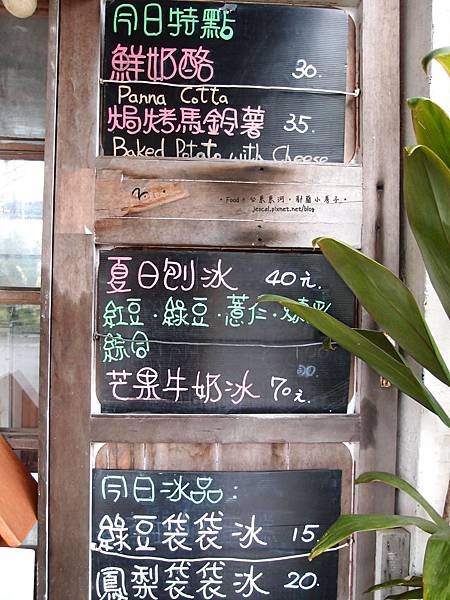 今日特點
鮮奶酪 30.
Panna Cotta
焗烤馬鈴薯 35.
Baked Potato with Cheese
・Food・公東東河・財廟小房子・
jescal.pixnet.net/blog
夏日刨冰 40元
紅豆・綠豆・薏仁・
綜合
芒果牛奶冰 70元
今日冰品:
綠豆袋袋冰 15.
鳳梨袋袋冰 20.